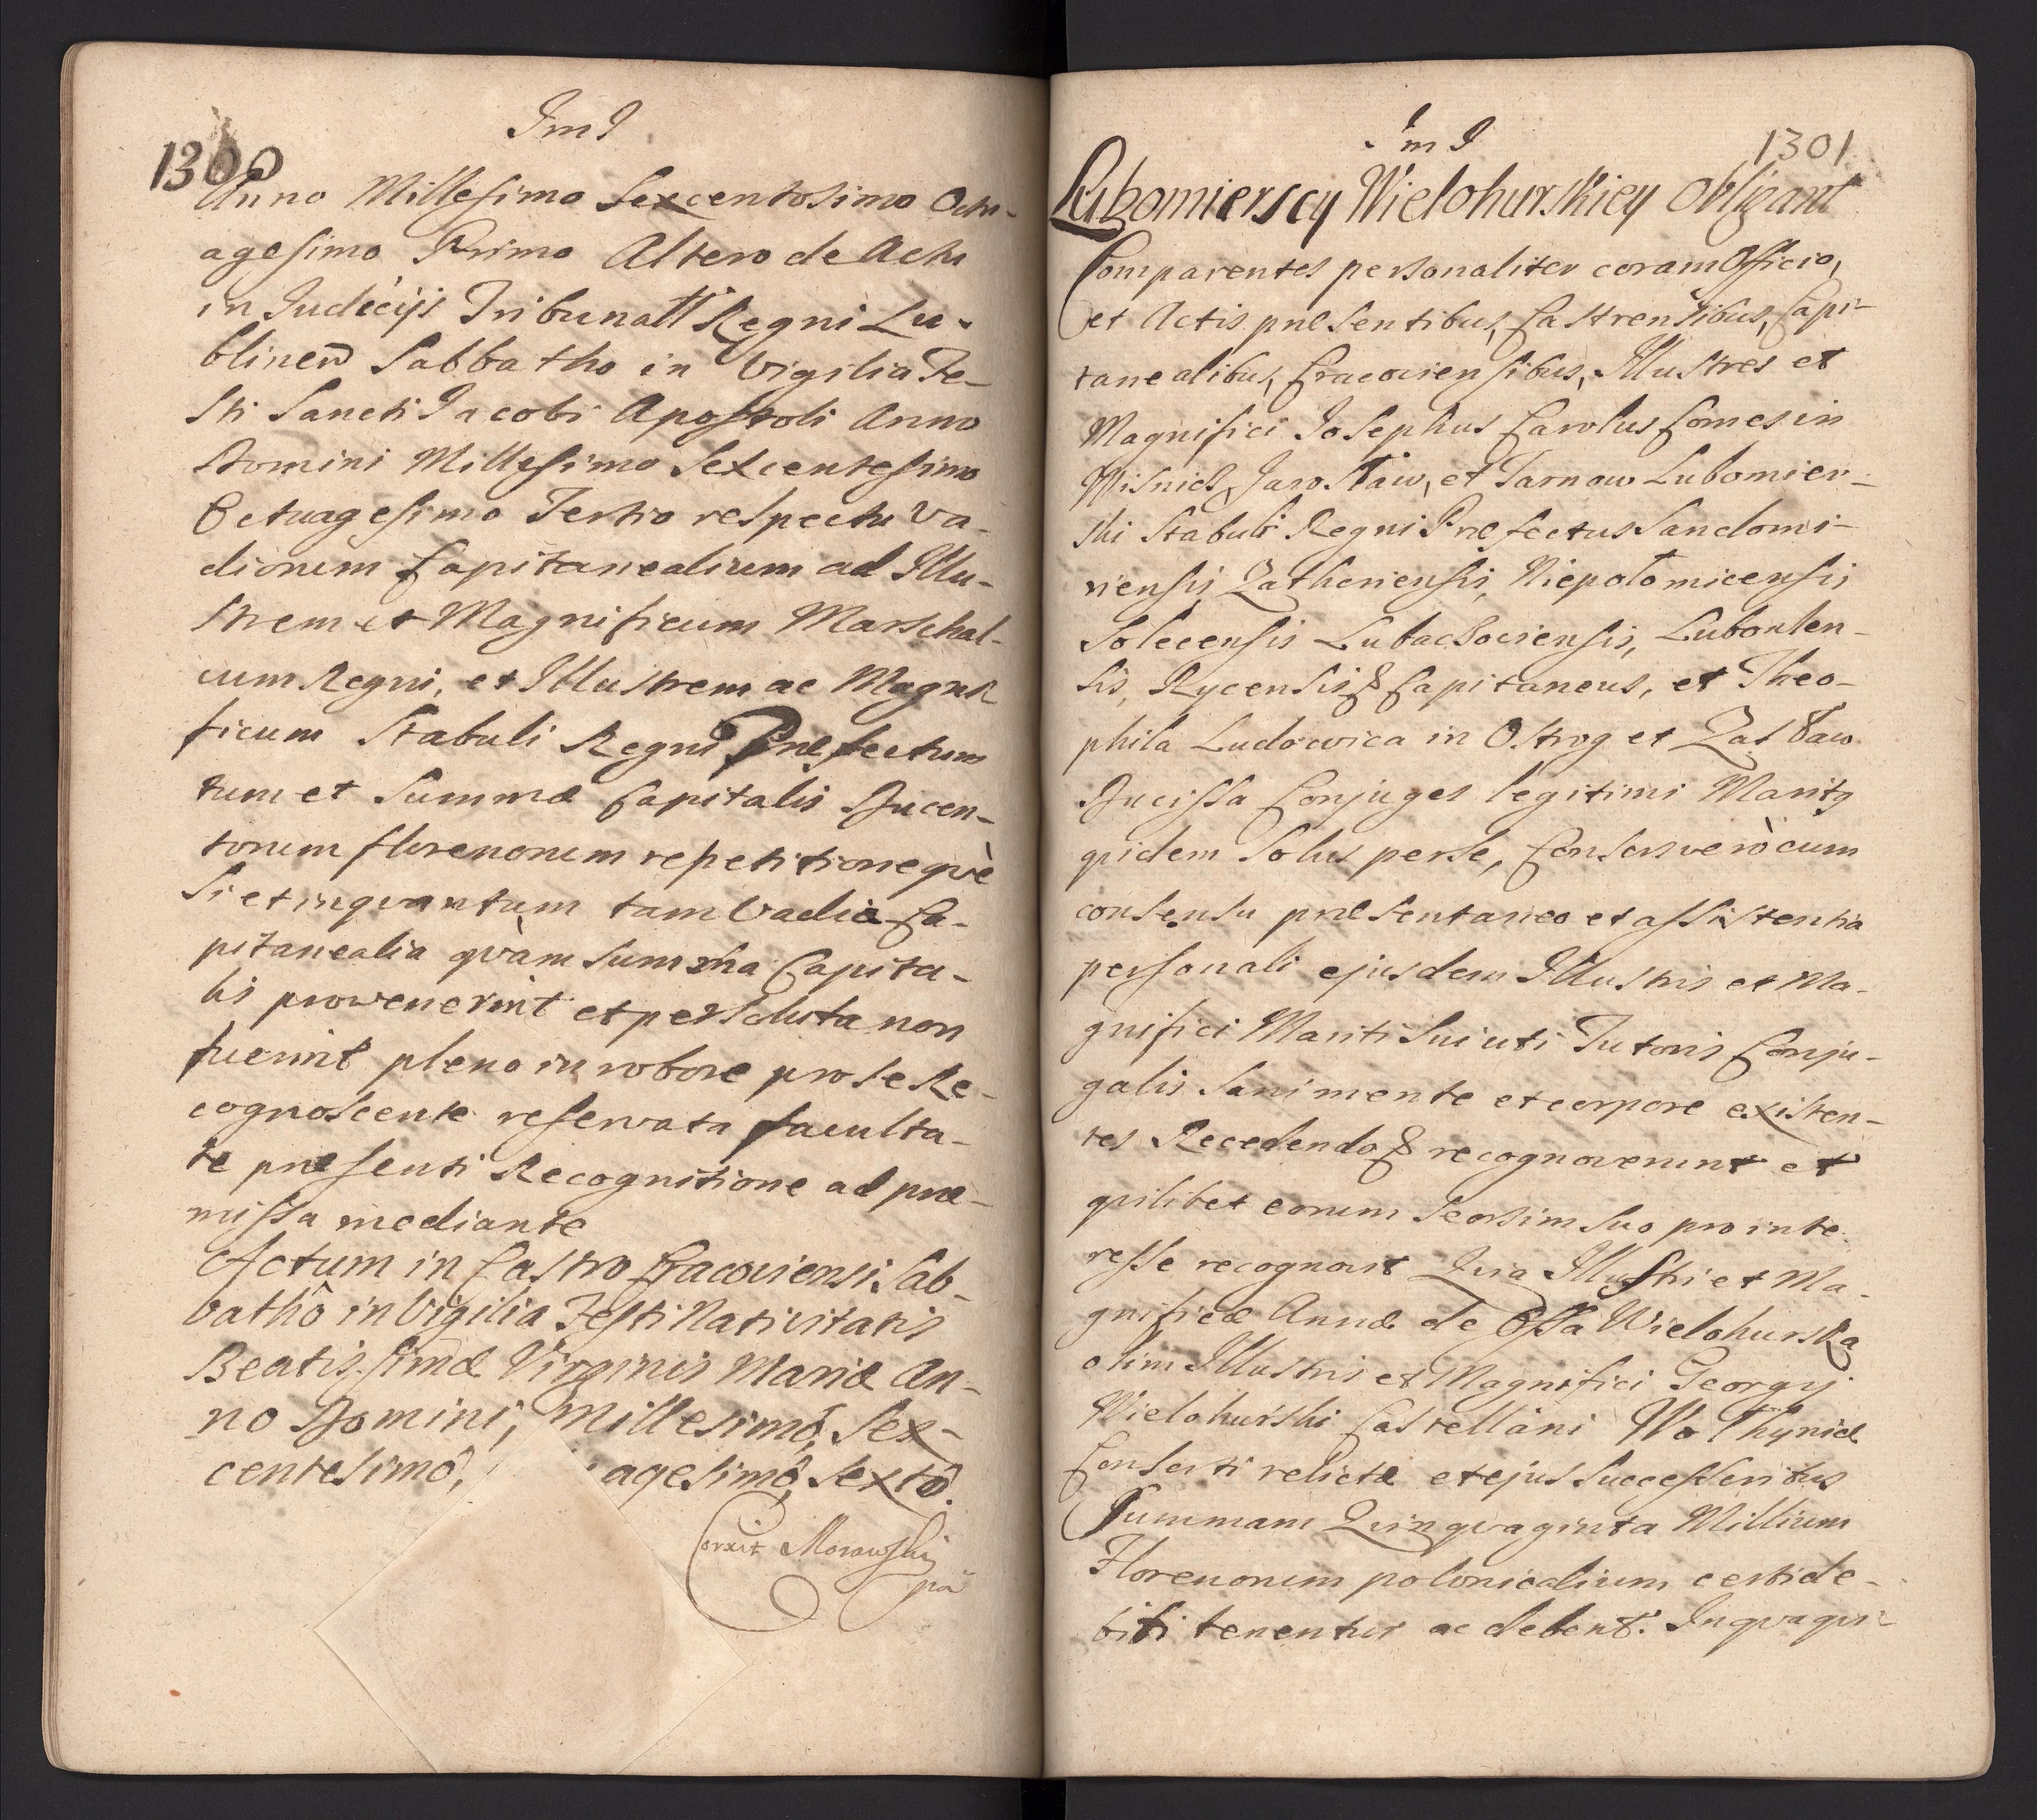 ImI
1300
Anno Millesimo Sexcentosimo Octu-
agesimo Primo Altero de Actu
in Judicijs Tribunall Regni Lu-
blinen Sabbatho in Vigilia Fe-
sti Sancti Jacobi Apostoli Anno
Domini Millesimo Sexcentesimo
Octuagesimo Tertio respectu Va-
diorum Capitanealium ad Illu-
strem et Magnificum Marschal-
cum Regni, et Illustrem ac Magni-
ficum Stabuli Regni Præfectum
tum et Summæ Capitalis Ducen-
torum florenorum repetitioneqvè
si et inqvantùm tam Vadia Ca-
pitanealia qvàm summa Capita-
lis prowenerint et persoluta non
fuerint pleno in robore pro se Re-
cognoscente reservata faculta-
te præsenti Recognitione ad præ-
missa mediante
Actum in Castro Cracoviensi Sab-
bathô in Vigilia Festi Nativitatis
Beatissimæ Virginis Mariæ An-
no Domini, Millesimô, Sex-
centesimô, agesimô, Sextô.
Corexit Morawski
pa
ImI
1301
Lubomierscy Wielohurskiey obligant
Comparentes personaliter coram Officio,
et Actis præsentibus, Castrensibus, Capi-
tanealibus, Cracoviensibus, Illustres et
Magnifici Josephus Carolus Comes in
Wisnicz, Jarosław, et Tarnow Lubomier-
ski Stabuli Regni Præfectus Sandomi-
riensis Zathoriensis, Niepołomicensis
Solecensis Lubaczoviensis, Lubomlen-
sis, Rycensis & Capitaneus, et Theo-
phila Ludowica in Ostrog et Zasław
Ducissa Conjuges legitimi Maritg
qvidem Solus per se, Consors verò cum
consensu præsentaneo et assistentia
personali ejusdem Illustris et Ma-
gnifici Mariti Sui uti Tutoris Conju-
galis Sani mente et corpore existen-
tes Recedendo & recognoverunt et
qvilibet eorum Seorsim Suo pro inte-
resse recognovit Qvia Illustri et Ma-
gnificæ Annæ de Ossa Wielohurska
olim Illustris et Magnifici Georgij
Wielohurski Castellani Wołhyniæ
Consorti relictæ et ejus Successoribus
Summam Qvinqvaginta Millium
Florenorum polonicalium certi de-
biti tenentur ac debent. In qva qvi-